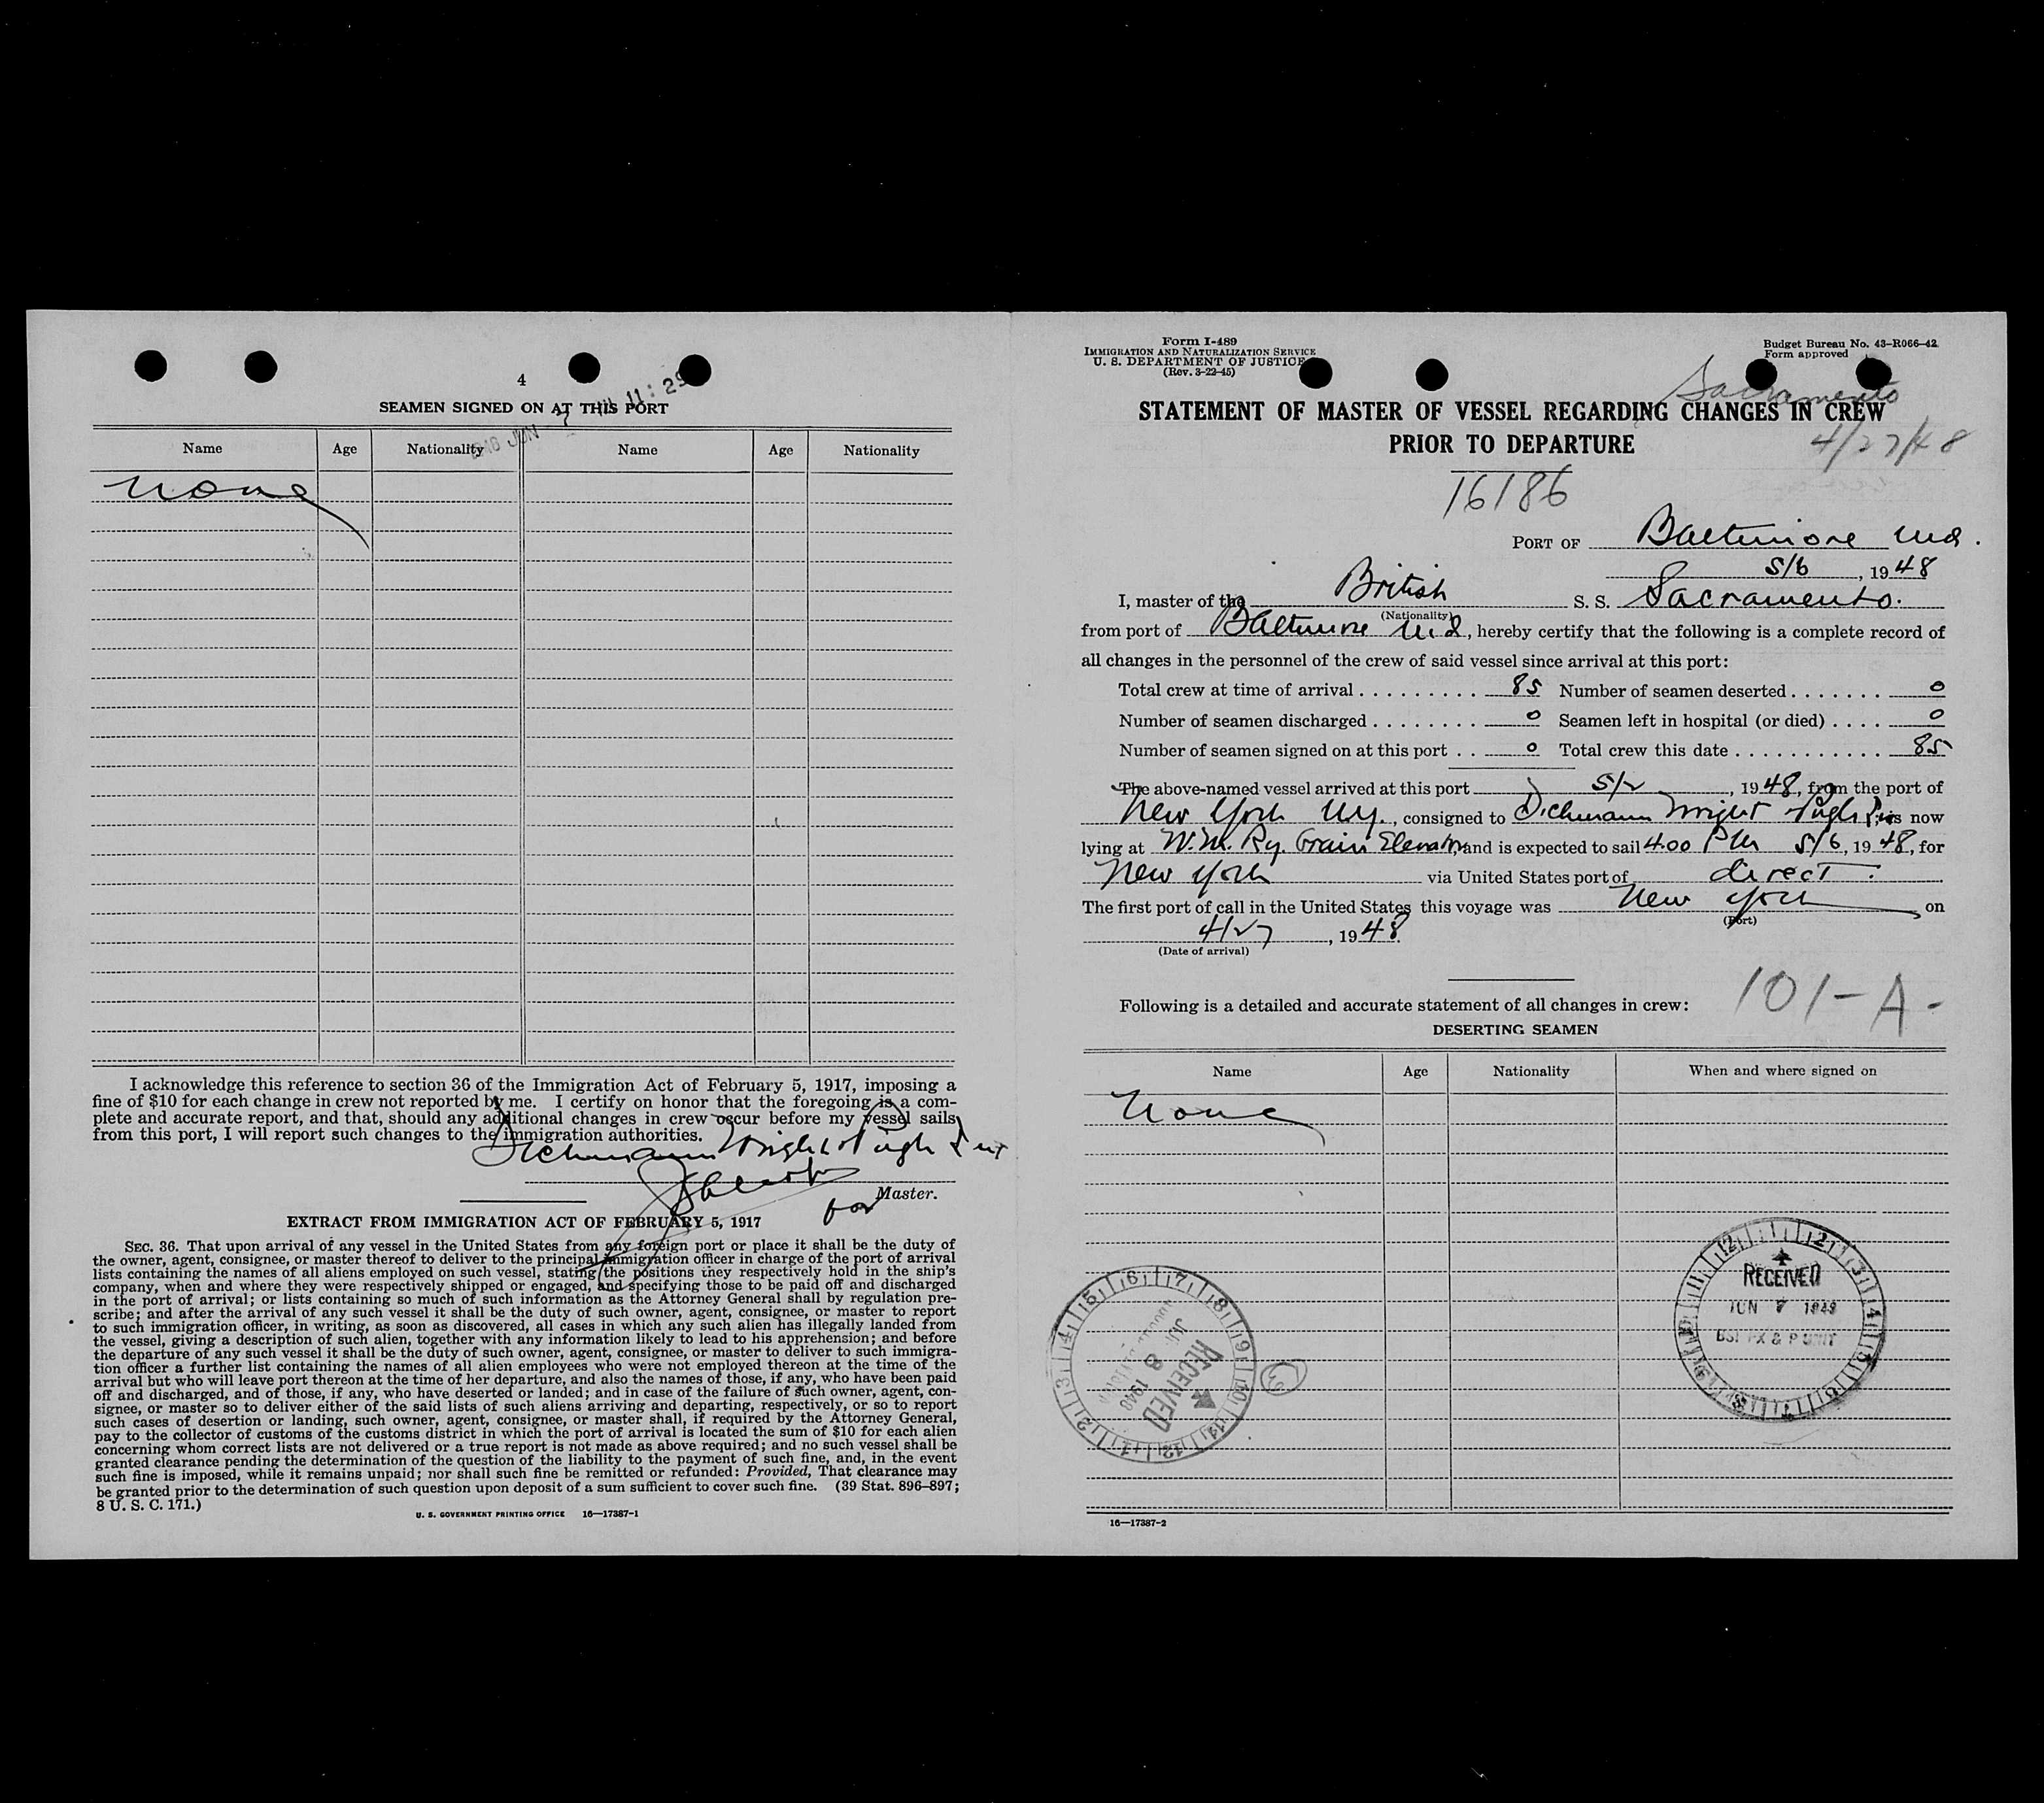 4
SEAMEN SIGNED ON AT THIS PORT
Name Age Nationality Name Age Nationality
None
I acknowledge this reference to section 36 of the Immigration Act of February 5, 1917, imposing a
fine of $10 for each change in crew not reported by me. I certify on honor that the foregoing is a com-
plete and accurate report, and that, should any additional changes in crew occur before my vessel sails
from this port, I will report such changes to the immigration authorities.
Dichmann Wright & Pugh Inc
for Master.
EXTRACT FROM IMMIGRATION ACT OF FEBRUARY 5, 1917
SEC. 36. That upon arrival of any vessel in the United States from any foreign port or place it shall be the duty of
the owner, agent, consignee, or master thereof to deliver to the principal immigration officer in charge of the port of arrival
lists containing the names of all aliens employed on such vessel, stating the positions they respectively hold in the ship's
company, when and where they were respectively shipped or engaged, and specifying those to be paid off and discharged
in the port of arrival; or lists containing so much of such information as the Attorney General shall by regulation pre-
scribe; and after the arrival of any such vessel it shall be the duty of such owner, agent, consignee, or master to report
to such immigration officer, in writing, as soon as discovered, all cases in which any such alien has illegally landed from
the vessel, giving a description of such alien, together with any information likely to lead to his apprehension; and before
the departure of any such vessel it shall be the duty of such owner, agent, consignee, or master to deliver to such immigra-
tion officer a further list containing the names of all alien employees who were not employed thereon at the time of the
arrival but who will leave port thereon at the time of her departure, and also the names of those, if any, who have been paid
off and discharged, and of those, if any, who have deserted or landed; and in case of the failure of such owner, agent, con-
signee, or master so to deliver either of the said lists of such aliens arriving and departing, respectively, or so to report
such cases of desertion or landing, such owner, agent, consignee, or master shall, if required by the Attorney General,
pay to the collector of customs of the customs district in which the port of arrival is located the sum of $10 for each alien
concerning whom correct lists are not delivered or a true report is not made as above required; and no such vessel shall be
granted clearance pending the determination of the question of the liability to the payment of such fine, and, in the event
such fine is imposed, while it remains unpaid; nor shall such fine be remitted or refunded: Provided, That clearance may
be granted prior to the determination of such question upon deposit of a sum sufficient to cover such fine. (39 Stat. 896-897;
8 U. S. C. 171.)
U. S. GOVERNMENT PRINTING OFFICE 16—17387-1
Form I-489
IMMIGRATION AND NATURALIZATION SERVICE
U. S. DEPARTMENT OF JUSTICE
(Rev. 3-22-45)
Budget Bureau No. 43-R066-42
Form approved
Sacramento
STATEMENT OF MASTER OF VESSEL REGARDING CHANGES IN CREW
PRIOR TO DEPARTURE
4/27/48
16186
PORT OF Baltimore Md.
5/6, 1948
I, master of the British S. S. Sacramento.
(Nationality)
from port of Baltimore Md, hereby certify that the following is a complete record of
all changes in the personnel of the crew of said vessel since arrival at this port:
Total crew at time of arrival 85 Number of seamen deserted 0
Number of seamen discharged 0 Seamen left in hospital (or died) 0
Number of seamen signed on at this port 0 Total crew this date 85
The above-named vessel arrived at this port 5/2, 1948, from the port of
New York N.Y., consigned to Dichmann Wright & Pugh I is now
lying at W.M. Ry. Grain Elevator, and is expected to sail 4.00 PM 5/6, 1948, for
New York via United States port of direct.
The first port of call in the United States this voyage was New York on
(Port)
4/27, 1948.
(Date of arrival)
101-A-
Following is a detailed and accurate statement of all changes in crew:
DESERTING SEAMEN
Name Age Nationality When and where signed on
None
RECEIVED
JUN 7 1948
BSI PX & P UNIT
RECEIVED
JUN 8 1948
16—17387-2